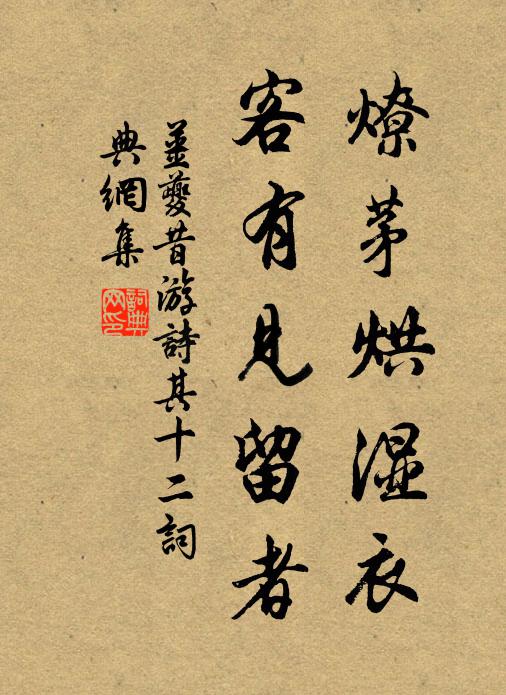 燎茅烘湿衣
客有見留者
姜夔昔游詩其十二詞
典網集
詞典網印